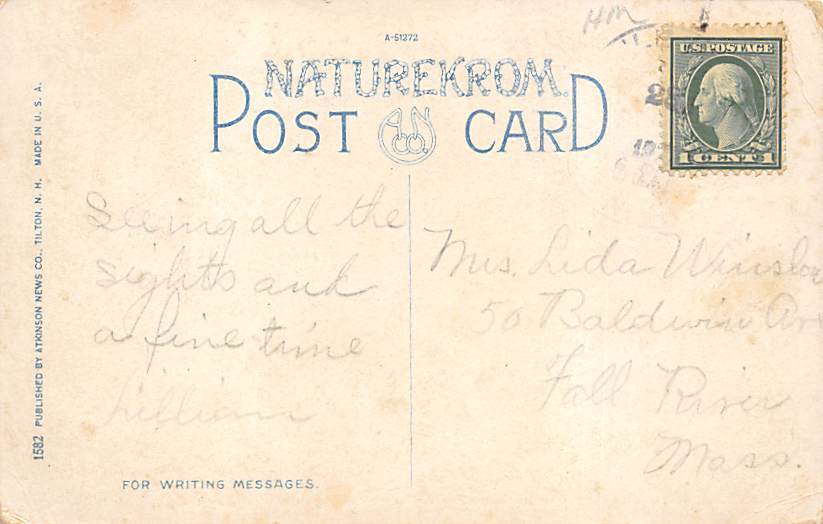 A-51272
HM
NATUREKROM
POST CARD
A.N. Co.
U.S. POSTAGE
1 CENT 1
28
Seeing all the
sights and
a fine time
Lillian
Mrs. Lida Winslow
50 Baldwin Av
Fall River
Mass.
FOR WRITING MESSAGES.
1582 PUBLISHED BY ATKINSON NEWS CO., TILTON, N. H. MADE IN U. S. A.